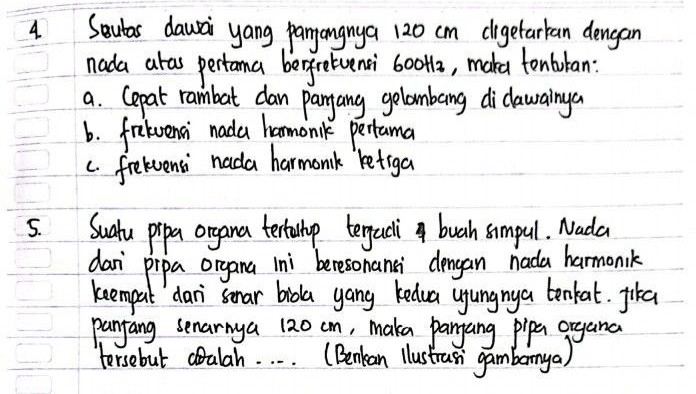 4. Seutas dawai yang panjangnya 120 cm digetarkan dengan
nada atas pertama berfrekuensi 600Hz, maka tentukan:
a. Cepat rambat dan panjang gelombang di dawainya
b. frekuensi nada harmonik pertama
c. frekuensi nada harmonik ketiga
5. Suatu pipa organa tertutup terjadi 4 buah simpul. Nada
dari pipa organa ini beresonansi dengan nada harmonik
keempat dari senar biola yang kedua ujungnya terikat. Jika
panjang senarnya 120 cm, maka panjang pipa organa
tersebut adalah .... (Berikan ilustrasi gambarnya)